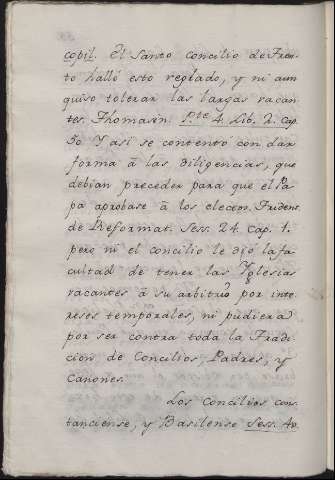 copil. El Santo concilio de Tren-
to halló esto reglado, y ni aun
quiso tolerar las largas vacan-
tes. Thomasin. Pte 4. Lib. 2. Cap.
50. Y asi se contentó con dar
forma à las diligencias, que
debian preceder para que el Pa-
pa aprobase à los elecem. Trident.
de Reformat. Sess. 24. cap. 1.
pero ni el concilio le dió la fa-
cultad de tener las Yglesias
vacantes à su arbitrio por inte-
reses temporales, ni pudiera
por ser contra toda la Tradi-
cion de Concilios, Padres, y
Canones.
Los Concilios cons-
tanciense, y Basilense Sess. 40.